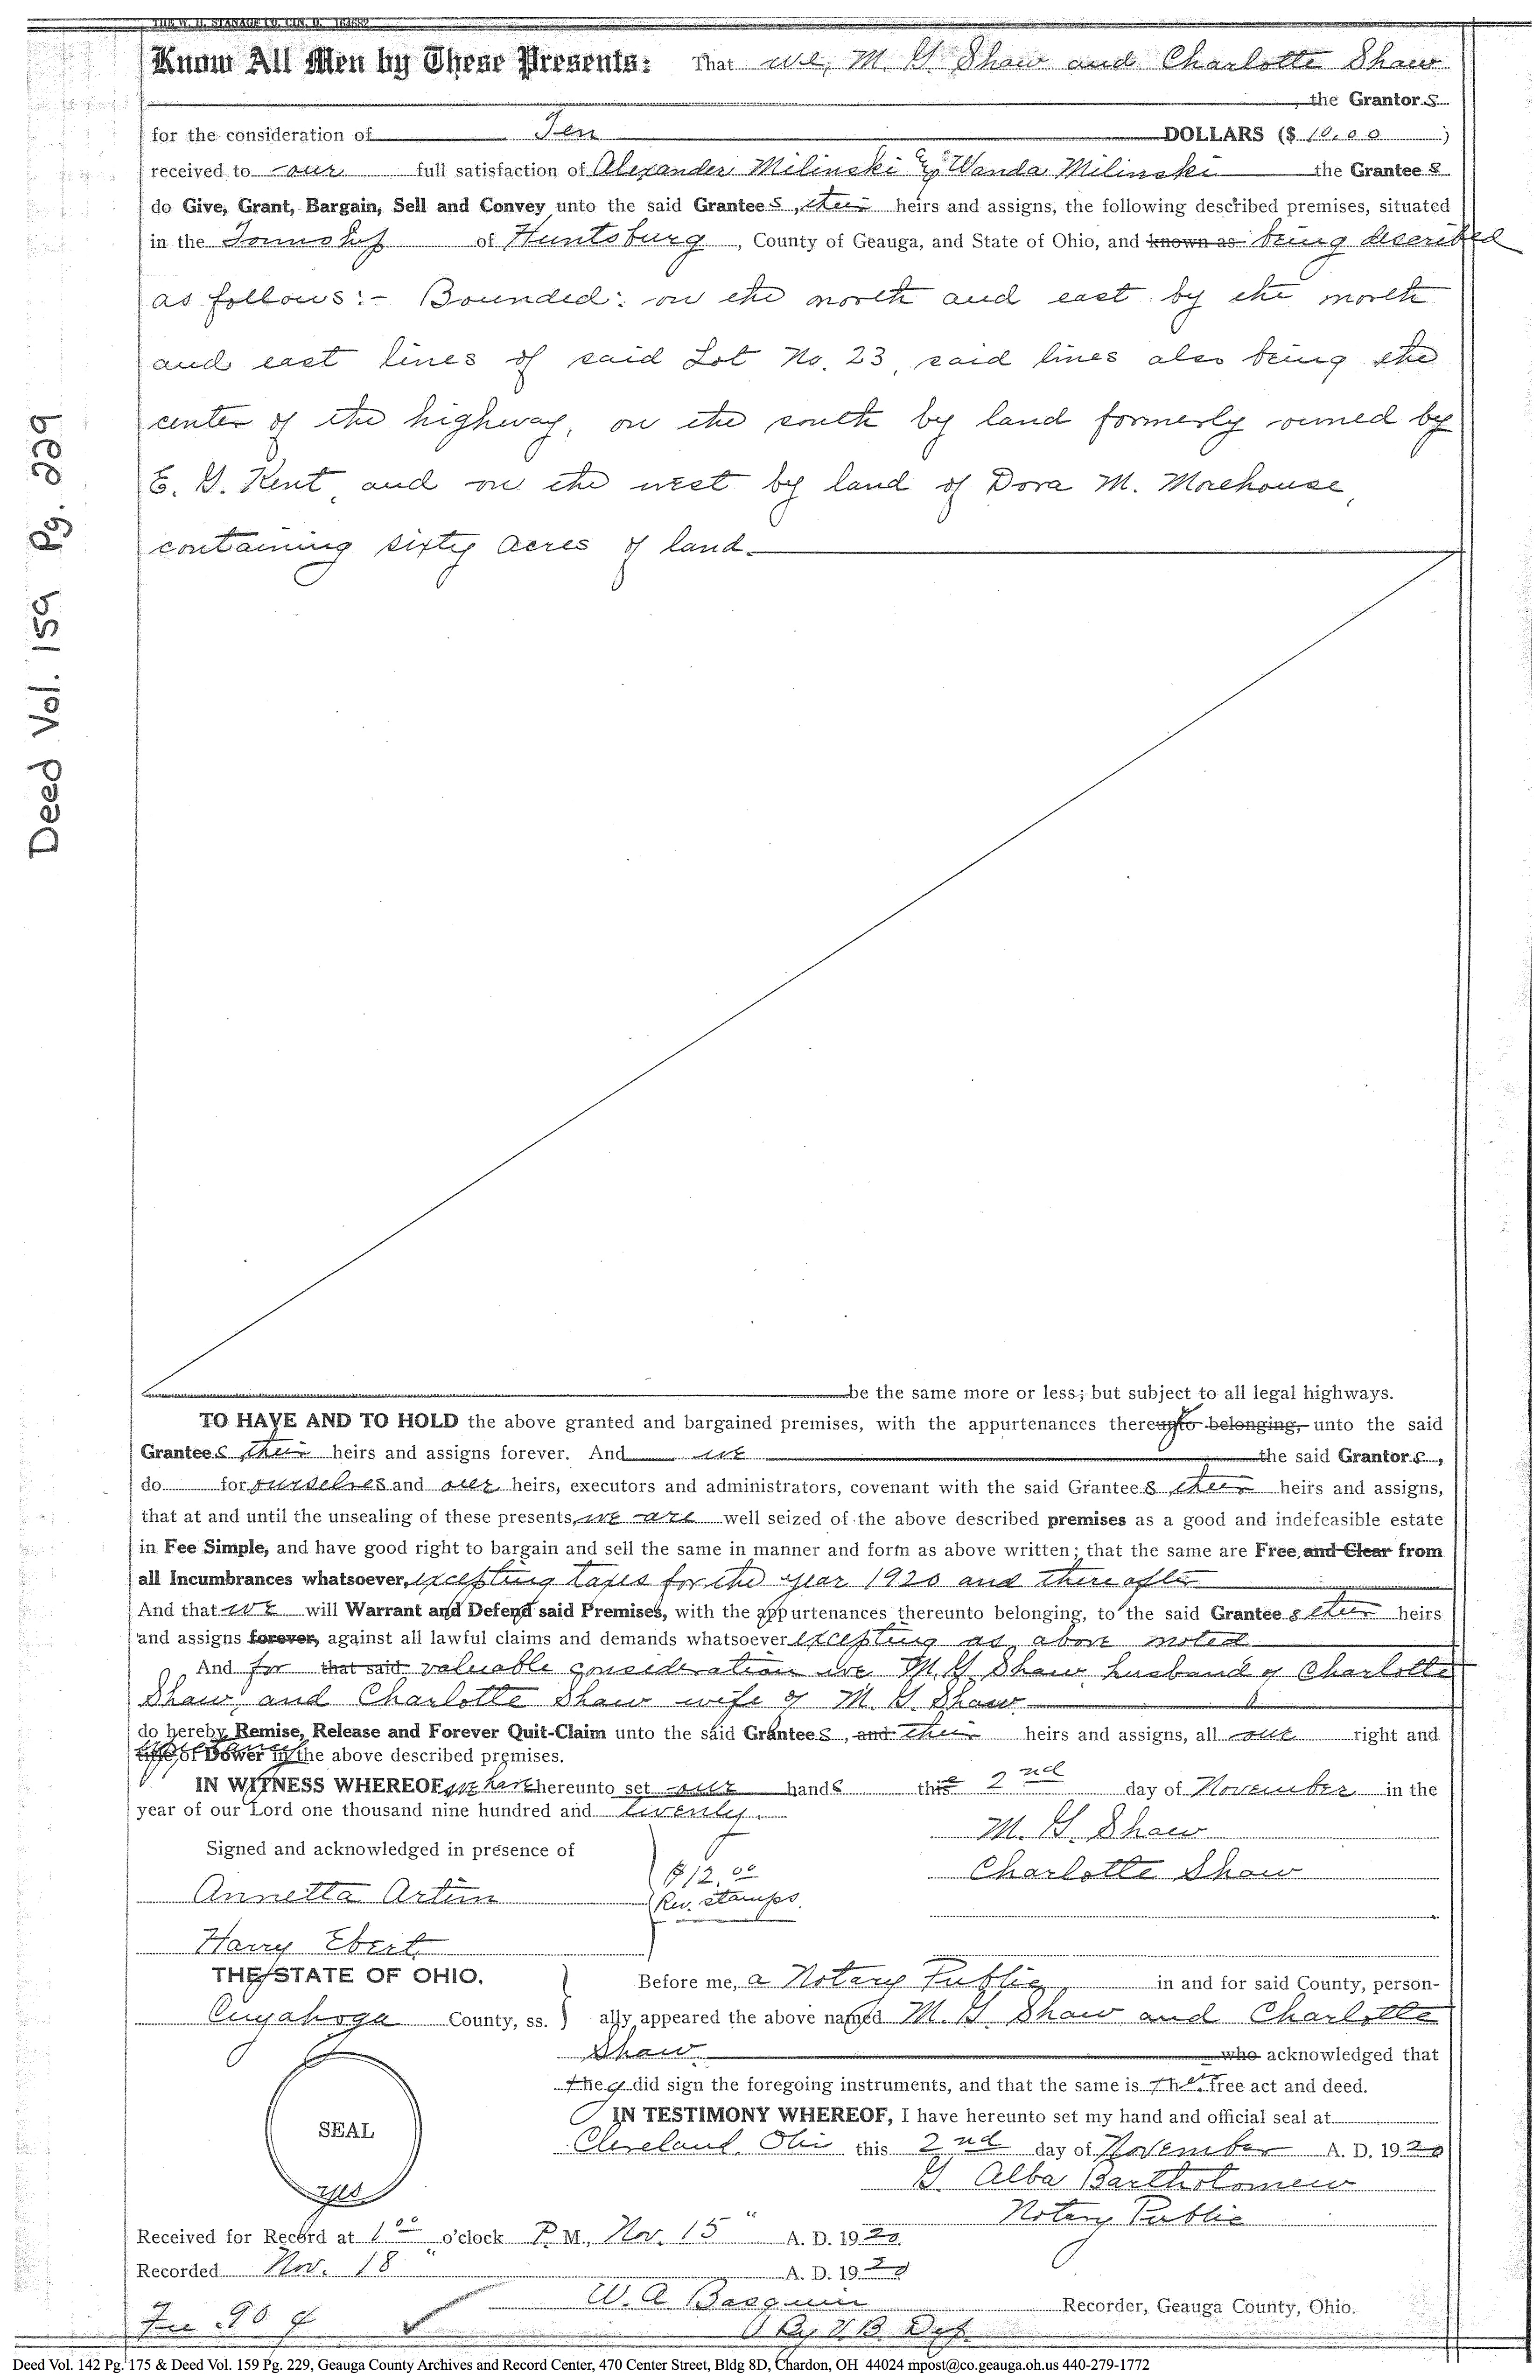 THE W. H. STANAGE CO. CIN. O. 164682
Know All Men by These Presents: That we, M. G. Shaw and Charlotte Shaw
, the Grantor s
for the consideration of Ten DOLLARS ($ 10.00 )
received to our full satisfaction of Alexander Milinski & Wanda Milinski the Grantee s
do Give, Grant, Bargain, Sell and Convey unto the said Grantee s, their heirs and assigns, the following described premises, situated
in the Township of Huntsburg, County of Geauga, and State of Ohio, and known as being described
as follows:- Bounded: on the north and east by the north
and east lines of said Lot No. 23, said lines also being the
center of the highway, on the south by land formerly owned by
E. G. Kent, and on the west by land of Dora M. Morehouse,
containing sixty acres of land.
Deed Vol. 159 Pg. 229
be the same more or less; but subject to all legal highways.
TO HAVE AND TO HOLD the above granted and bargained premises, with the appurtenances thereunto belonging, unto the said
Grantee s their heirs and assigns forever. And we the said Grantor s,
do for ourselves and our heirs, executors and administrators, covenant with the said Grantee s their heirs and assigns,
that at and until the unsealing of these presents, we are well seized of the above described premises as a good and indefeasible estate
in Fee Simple, and have good right to bargain and sell the same in manner and form as above written; that the same are Free, and Clear from
all Incumbrances whatsoever, excepting taxes for the year 1920 and thereafter
And that we will Warrant and Defend said Premises, with the appurtenances thereunto belonging, to the said Grantee s their heirs
and assigns forever, against all lawful claims and demands whatsoever excepting as above noted
And for that said valuable consideration we M. G. Shaw, husband of Charlotte
Shaw, and Charlotte Shaw wife of M. G. Shaw
do hereby Remise, Release and Forever Quit-Claim unto the said Grantee s, and their heirs and assigns, all our right and
title of expectancy Dower in the above described premises.
IN WITNESS WHEREOF, we have hereunto set our hand s this 2nd day of November in the
year of our Lord one thousand nine hundred and twenty.
M. G. Shaw
Signed and acknowledged in presence of
Charlotte Shaw
$12.00
Annetta Artim
Rev. stamps.
Harry Ebert
THE STATE OF OHIO, Before me, a Notary Public in and for said County, person-
Cuyahoga County, ss. ally appeared the above named M. G. Shaw and Charlotte
Shaw who acknowledged that
they did sign the foregoing instruments, and that the same is their free act and deed.
IN TESTIMONY WHEREOF, I have hereunto set my hand and official seal at
SEAL
Cleveland, Ohio this 2nd day of November A. D. 1920
G. Alba Bartholomew
yes
Notary Public
Received for Record at 1 00 o'clock P. M., Nov. 15 " A. D. 1920
Recorded Nov. 18 " A. D. 1920
W. A. Basquin Recorder, Geauga County, Ohio.
Fee .90 ¢
By Dep.
Deed Vol. 142 Pg. 175 & Deed Vol. 159 Pg. 229, Geauga County Archives and Record Center, 470 Center Street, Bldg 8D, Chardon, OH 44024 mpost@co.geauga.oh.us 440-279-1772